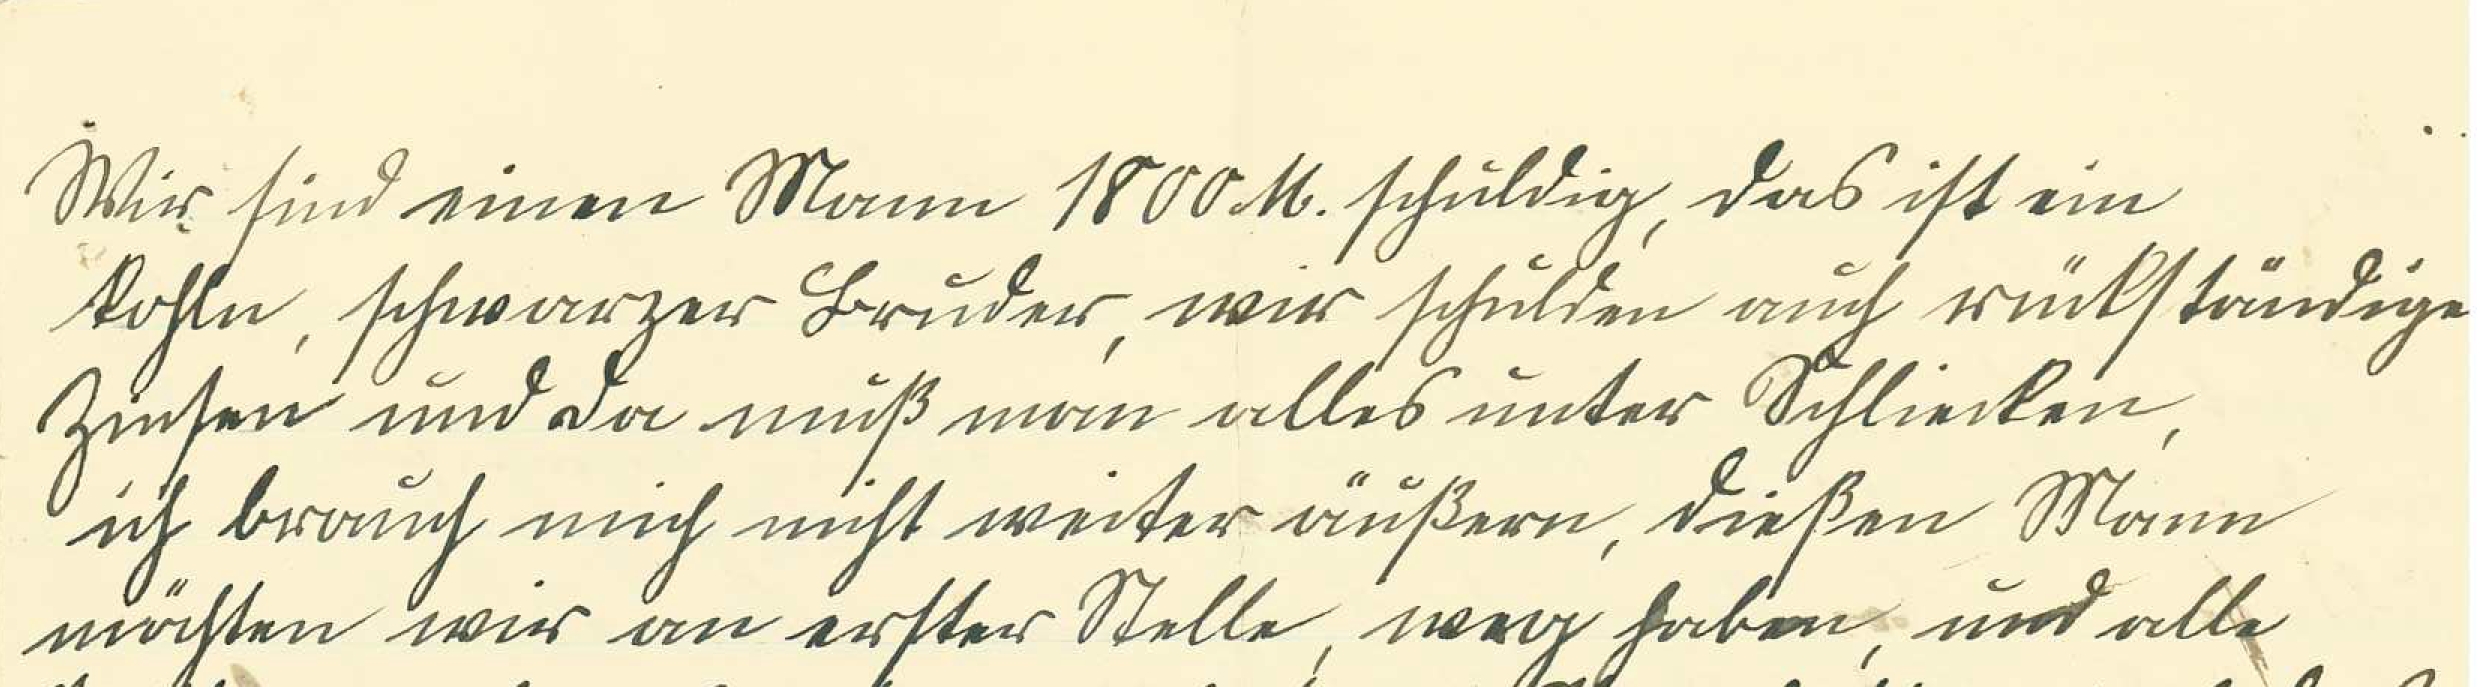 Wir sind einen Mann 1800 M. schuldig, das ist ein
kohln, schwarzer Bruder, wir schulden auch rückständige
Zinsen und da muß man alles unter Schliecken,
ich brauch mich nicht weiter äußern, dießen Mann
möchten wir an erster Stelle, weg haben, und alle